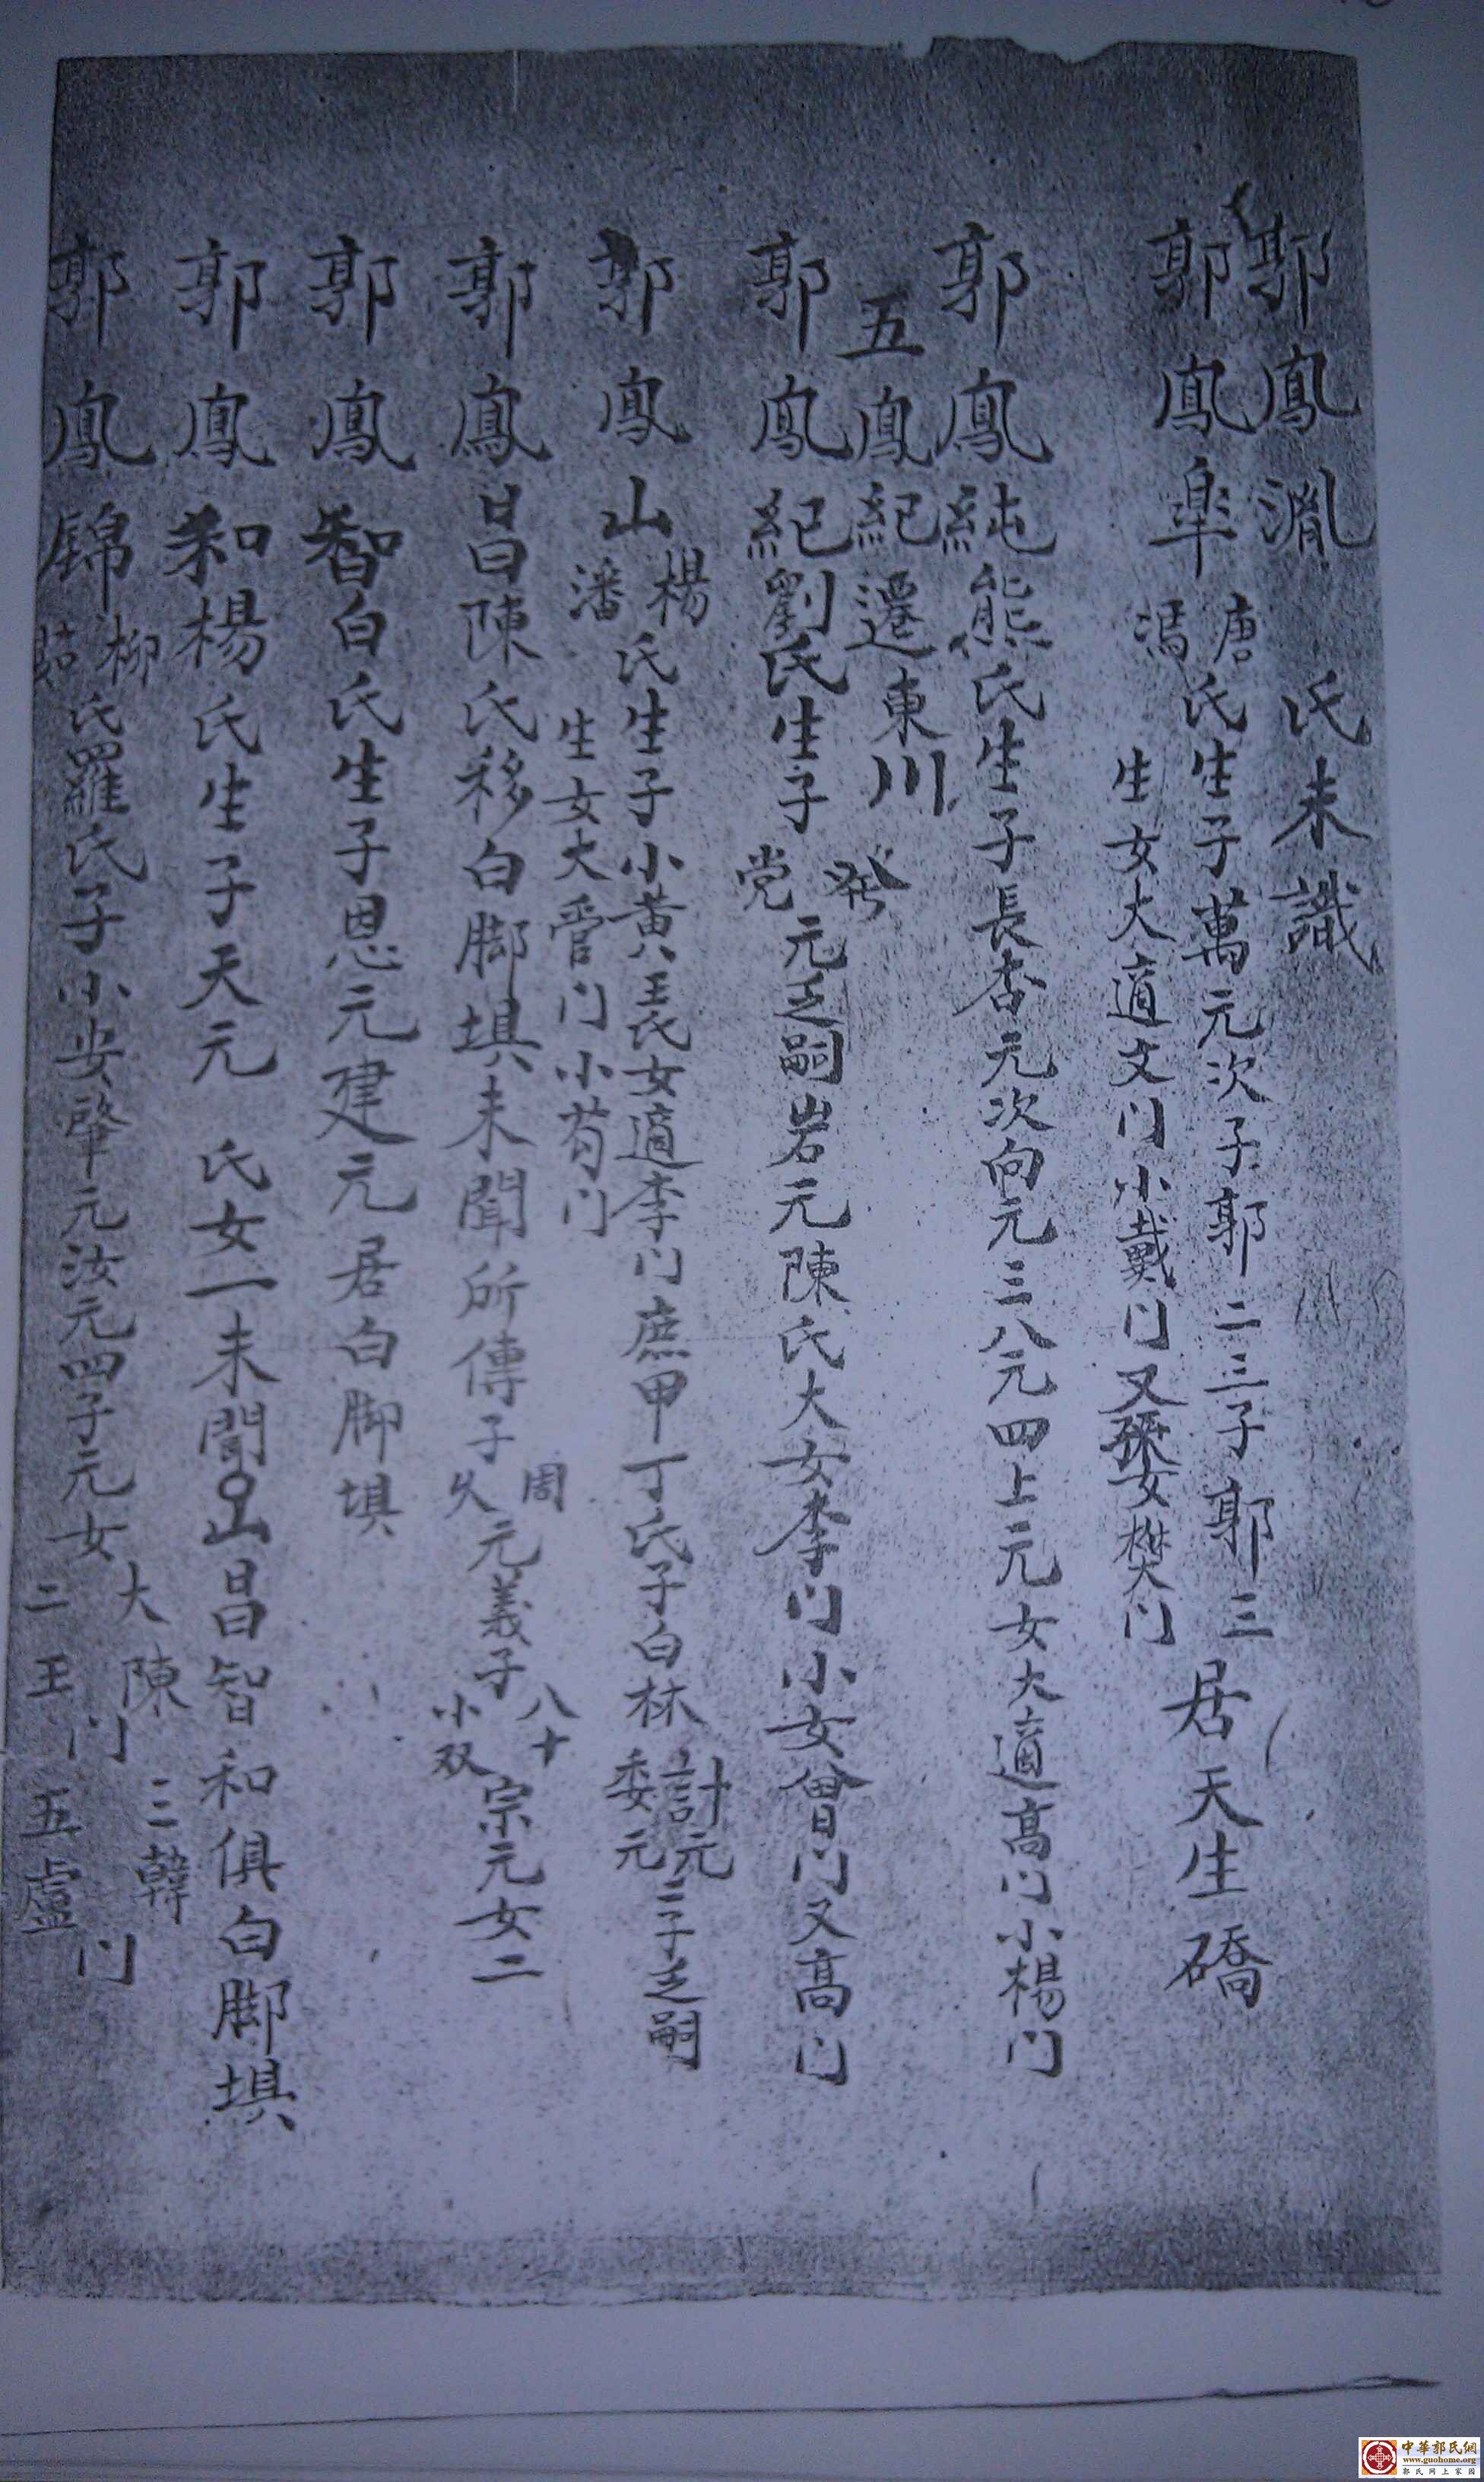 郭鳳胤 氏未識
郭鳳皐唐馮氏生子萬元次子郭二三子郭三 居天生礄
生女大適文门小戴门又張女樊门
郭鳳純熊氏生子長杏元次向元三八元四上元女大適高门小楊门
五鳳紀遷東川
郭鳳紀劉氏生子發党元乏嗣岩元陳氏大女李门小女曾门又高门
郭鳳山楊潘氏生子小黄王氏女適李门庶甲丁氏子白林計元委元三子乏嗣
生女大管门小苟门
郭鳳昌陳氏移白脚埧未聞所傳子周久元義子八十小双宗元女二
郭鳳智白氏生子恩元建元居白脚埧
郭鳳和楊氏生子天元 氏女一未聞山昌智和俱白脚埧
郭鳳錦柳茹氏羅氏子小安肇元汝元四子元女大陳二王门三韓五盧门
中華郭氏網
www.guohome.org
郭氏网上家园